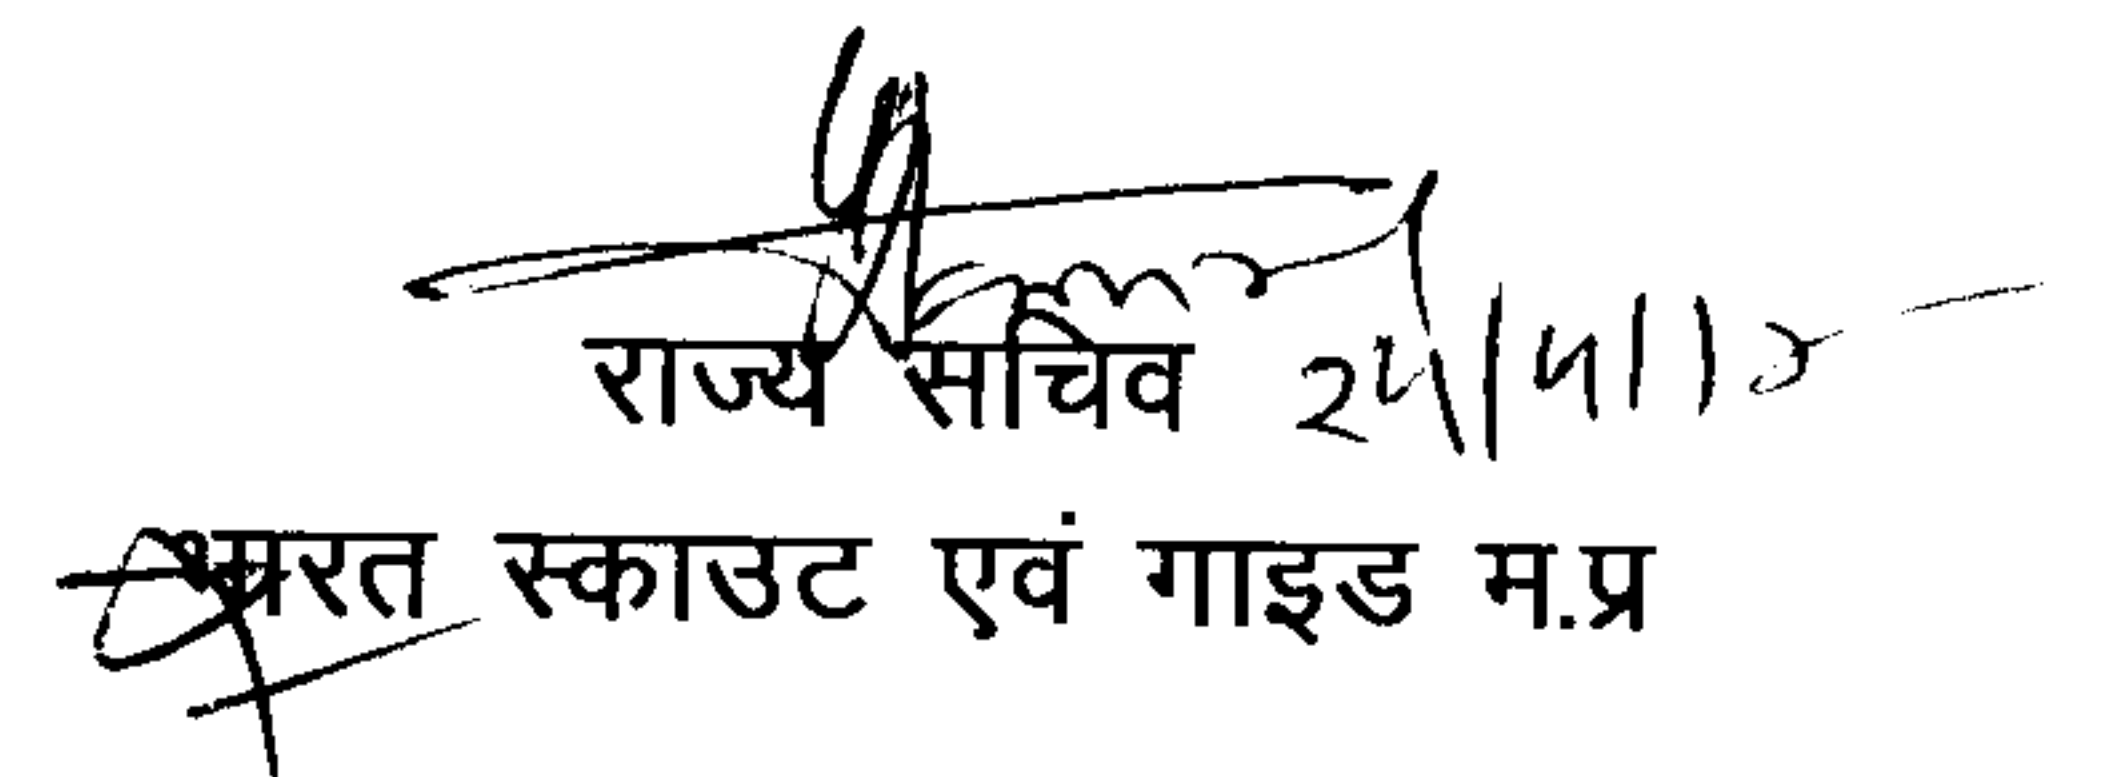 राज्य सचिव
भारत स्काउट एवं गाइड म.प्र